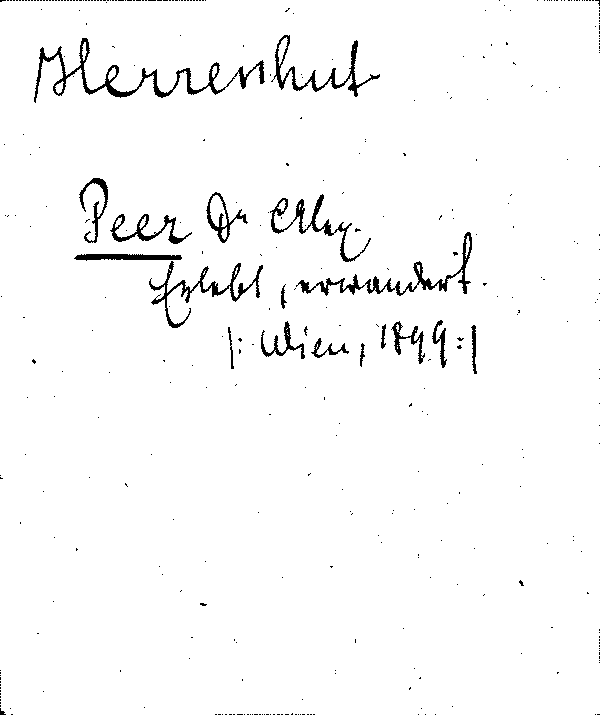 Herrenhut
Peer Dr Alex.
Erlebt, erwandert.
|: Wien, 1899:|